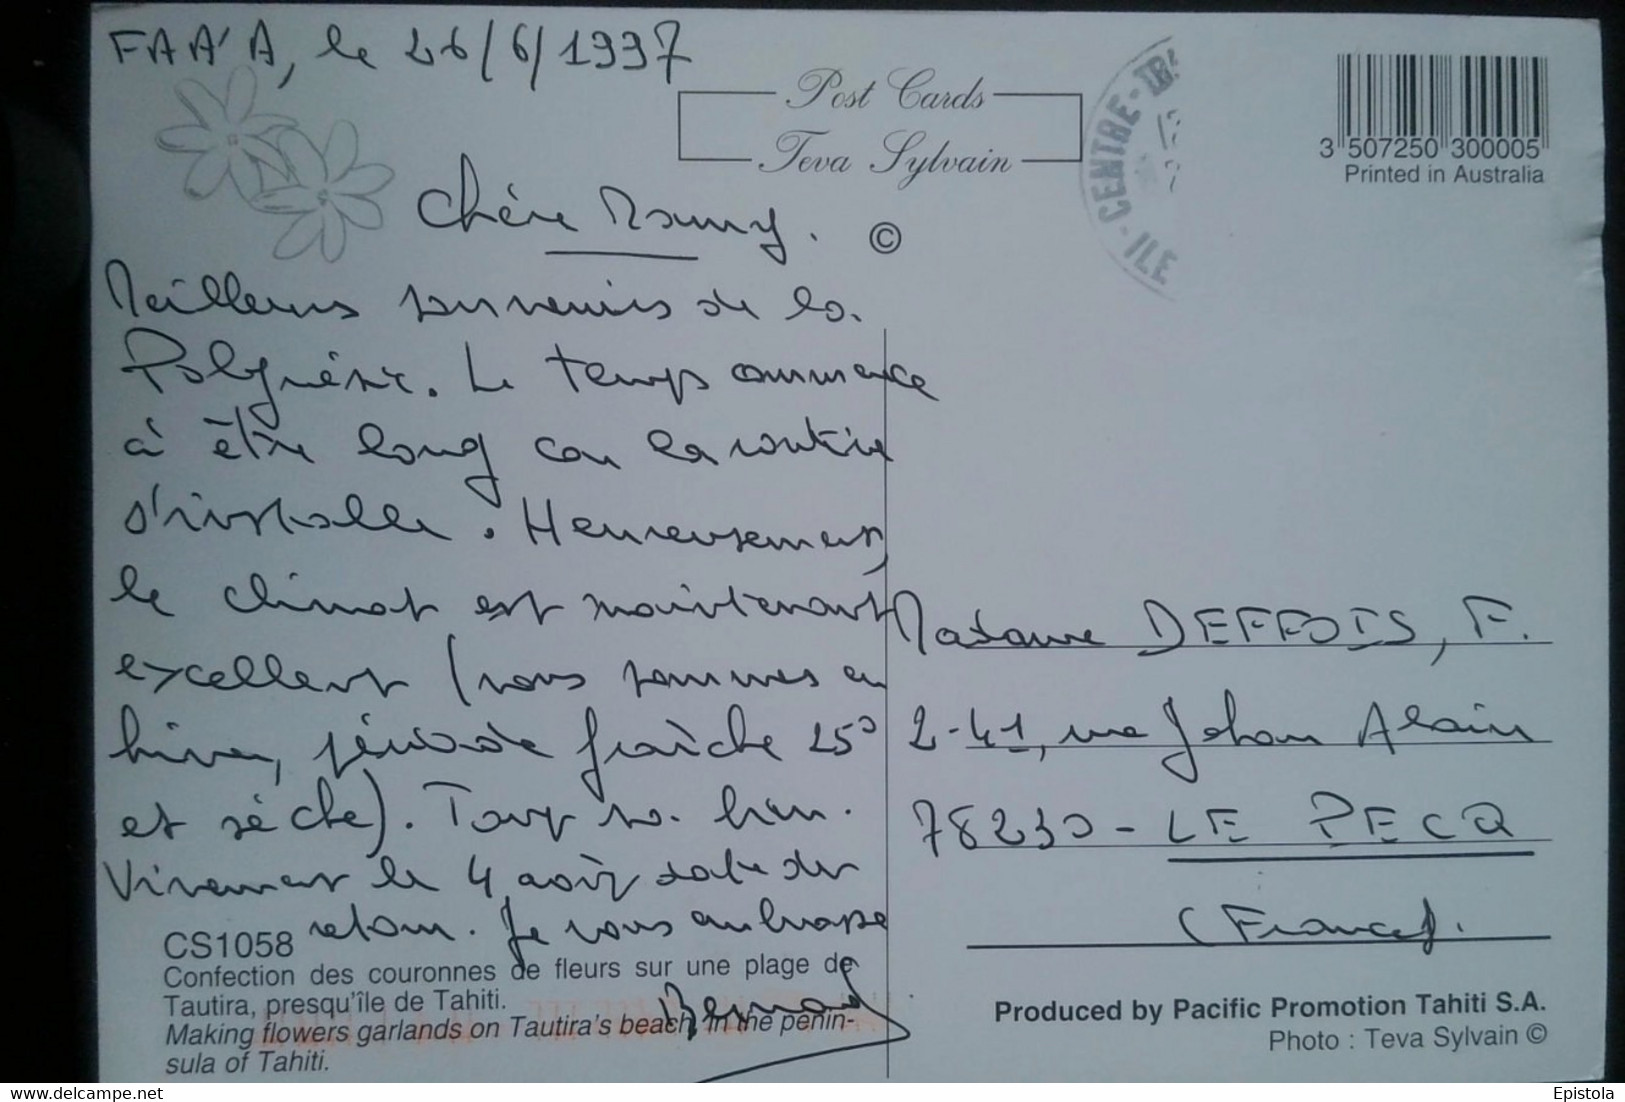 FAA'A, le 26/6/1997
Post Cards
Teva Sylvain
CENTRE - TRA
ILE
3 507250 300005
Printed in Australia
Chère Mamy.
©
Meilleurs souvenirs de la
Polynésie. Le temps commence
à être long car la routine
s'installe. Heureusement
le climat est maintenant
excellent (nous sommes en
hiver, période fraîche 25°
et sèche). Tout va bien.
Vivement le 4 août date du
retour. Je vous embrasse
Bernard
Madame DEFFOIS, F.
2-41, rue Jehan Alain
78230 - LE PECQ
(France).
CS1058
Confection des couronnes de fleurs sur une plage de
Tautira, presqu'île de Tahiti.
Making flowers garlands on Tautira's beach, in the penin-
sula of Tahiti.
Produced by Pacific Promotion Tahiti S.A.
Photo : Teva Sylvain ©
www.delcampe.net
Epistola